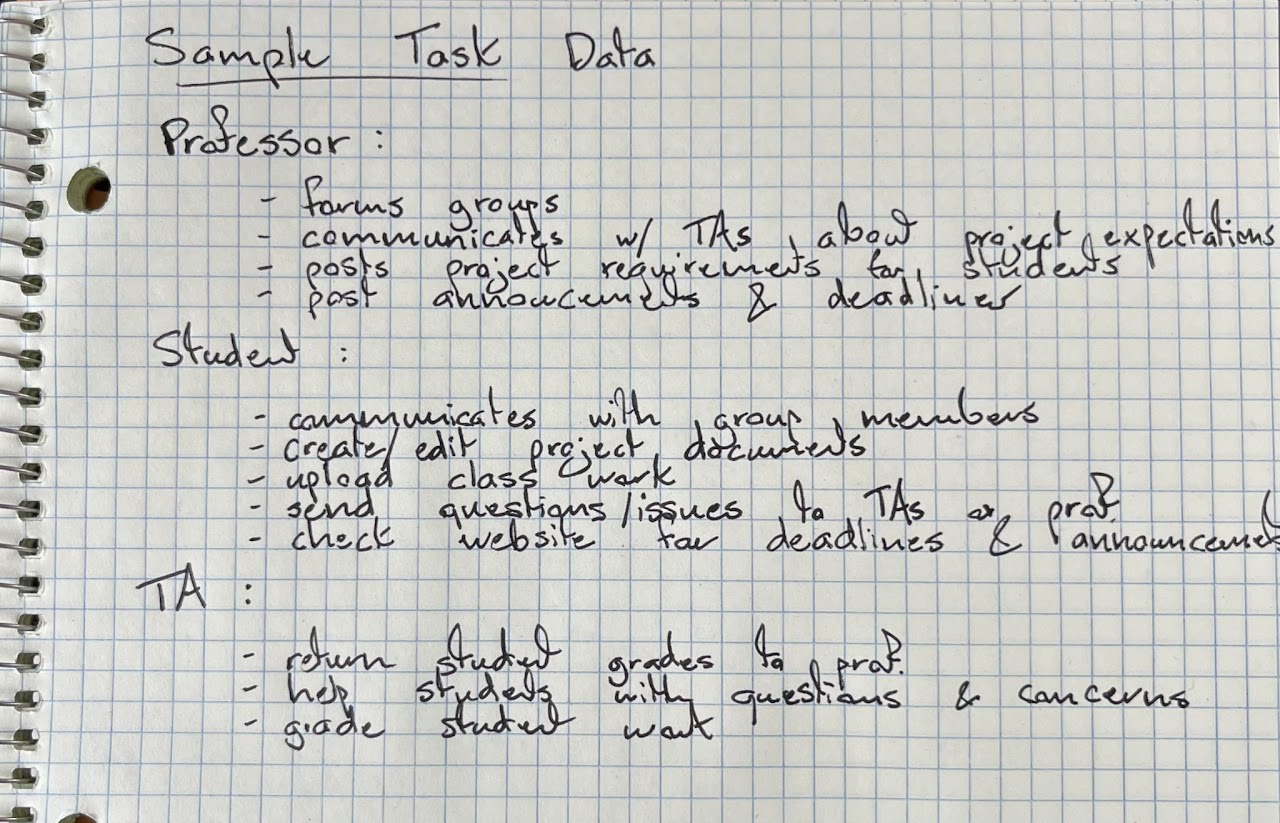 Sample Task Data
Professor :
- forms groups
- communicates w/ TAs about project expectations
- posts project requirements for students
- post annoucements & deadlines
Student :
- communicates with group members
- create/edit project documents
- upload class work
- send questions/issues to TAs or prof.
- check website for deadlines & announcements
TA :
- return student grades to prof.
- help students with questions & concerns
- grade student work